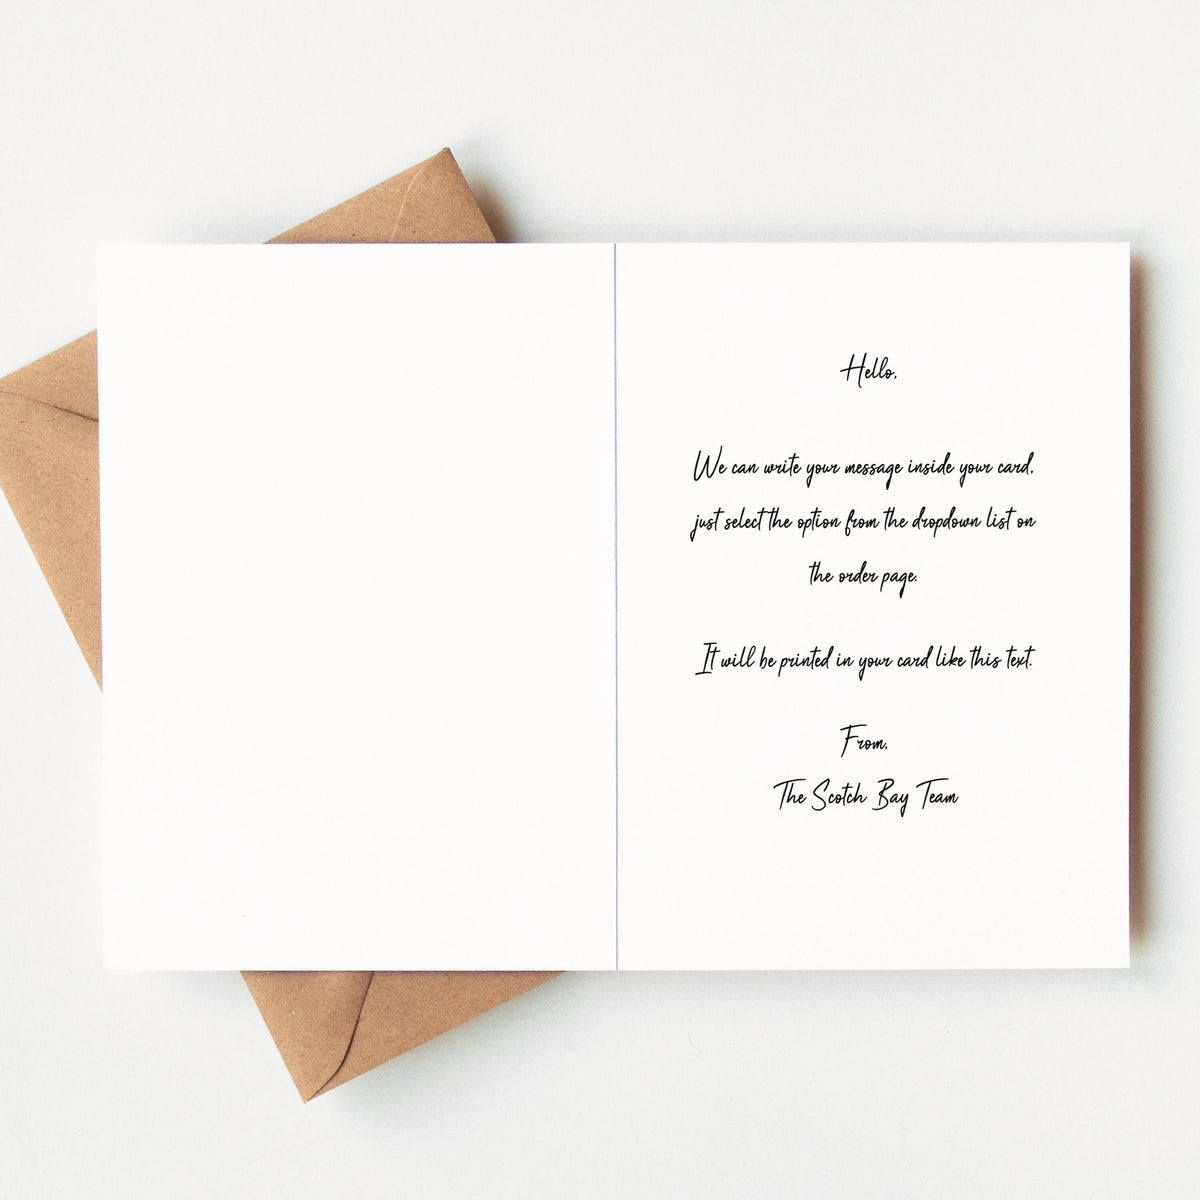 Hello,
We can write your message inside your card,
just select the option from the dropdown list on
the order page.
It will be printed in your card like this text.
From,
The Scotch Bay Team